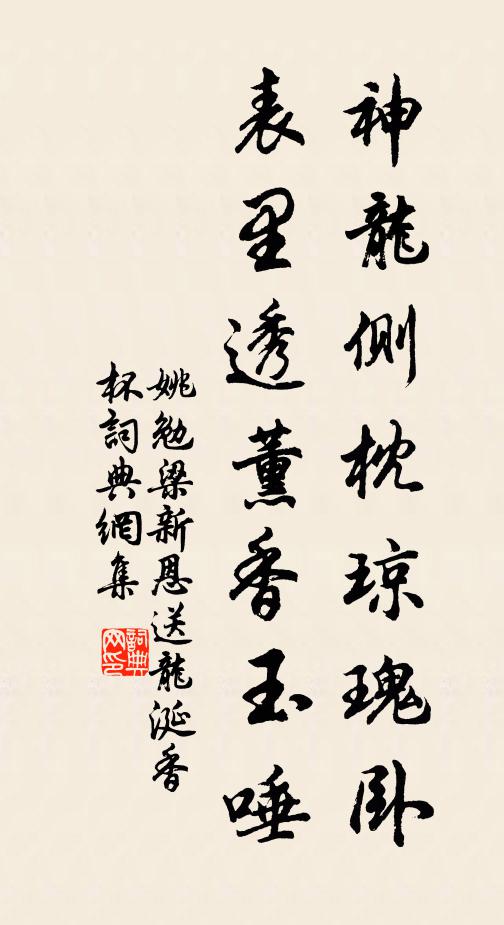 神龍側枕琼瑰卧
表里透薰香玉唾
姚勉梁新恩送龍涎香
杯詞典網集
詞典网印